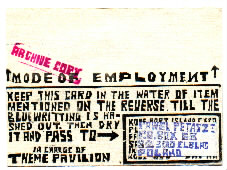 ARCHIVE COPY
MODE OF EMPLOYMENT
KEEP THIS CARD IN THE WATER OF ITEM
MENTIONED ON THE REVERSE TILL THE
BLUE WRITTING IS WA-
SHED OUT. THEN DRY
IT AND PASS TO
IN CHARGE OF
THEME PAVILION
PAWEL PETASZ
ELBLAG
POLAND